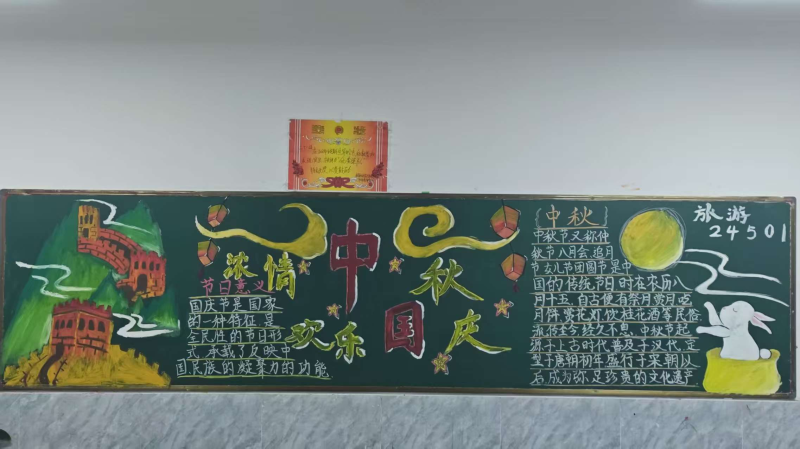 奖状
浓情中秋
欢乐国庆
节日意义
国庆节是国家
的一种特征是
全民性的节日形
式,承载了反映中
国民族的凝聚力的功能
{中秋}
中秋节又称仲
秋节八月会追月
节女儿节团圆节是中
国的传统节日时在农历八
月十五自古便有祭月赏月吃
月饼赏花灯饮桂花酒等民俗
流传至今经久不息中秋节起
源于上古时代普及于汉代定
型于唐朝初年盛行于宋朝以
后成为弥足珍贵的文化遗产
旅游
24501